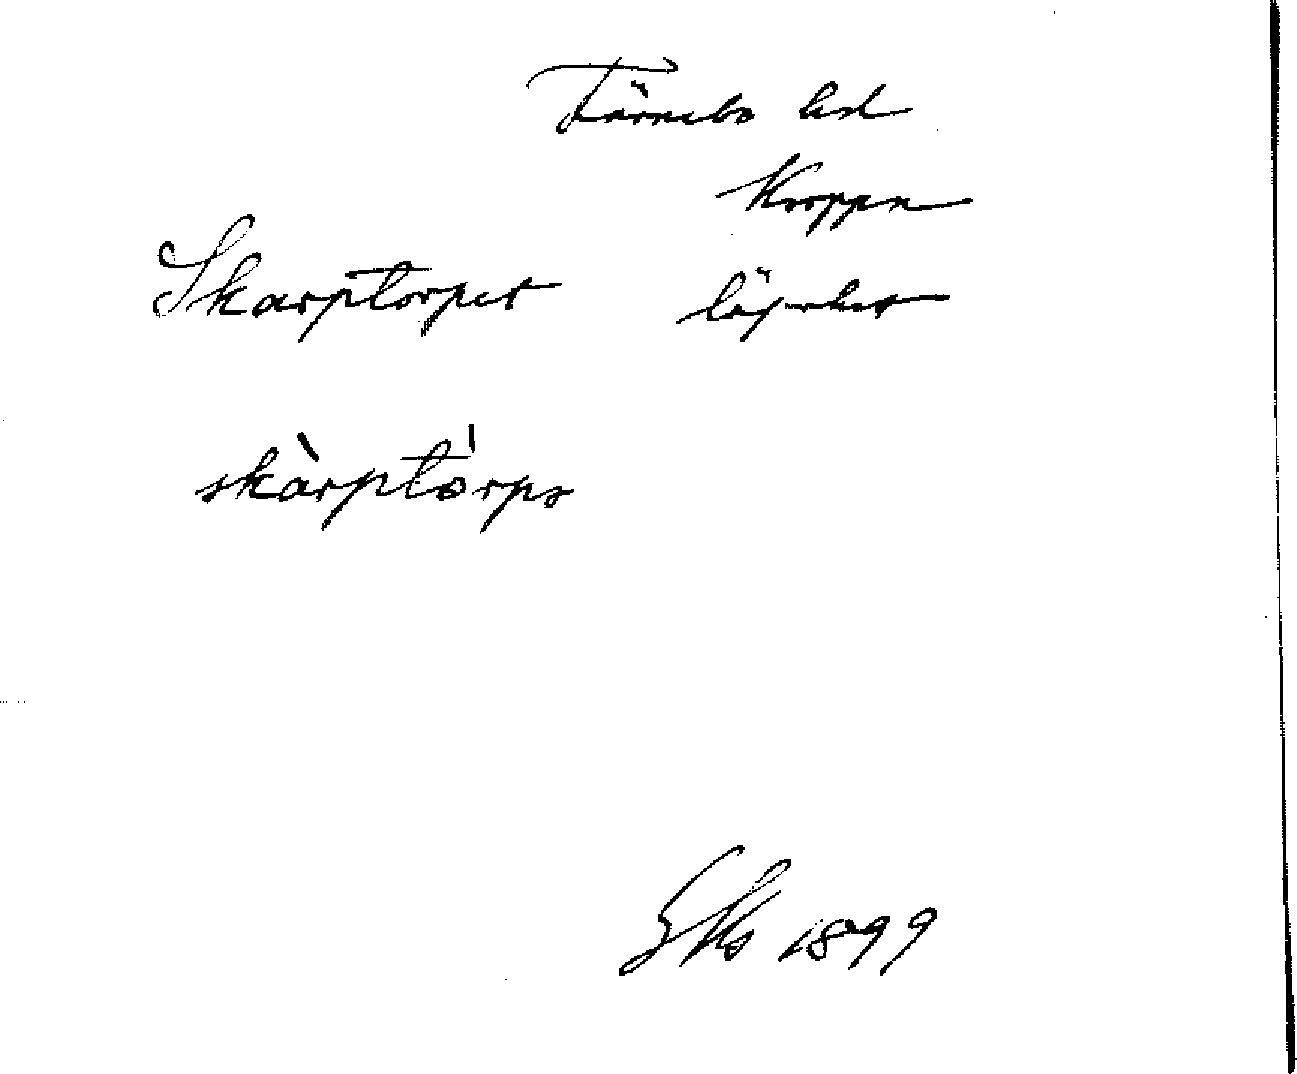 Färnebo hd
Kroppa
Skarptorpet lägenhet
skàrptòrps
Eks 1899